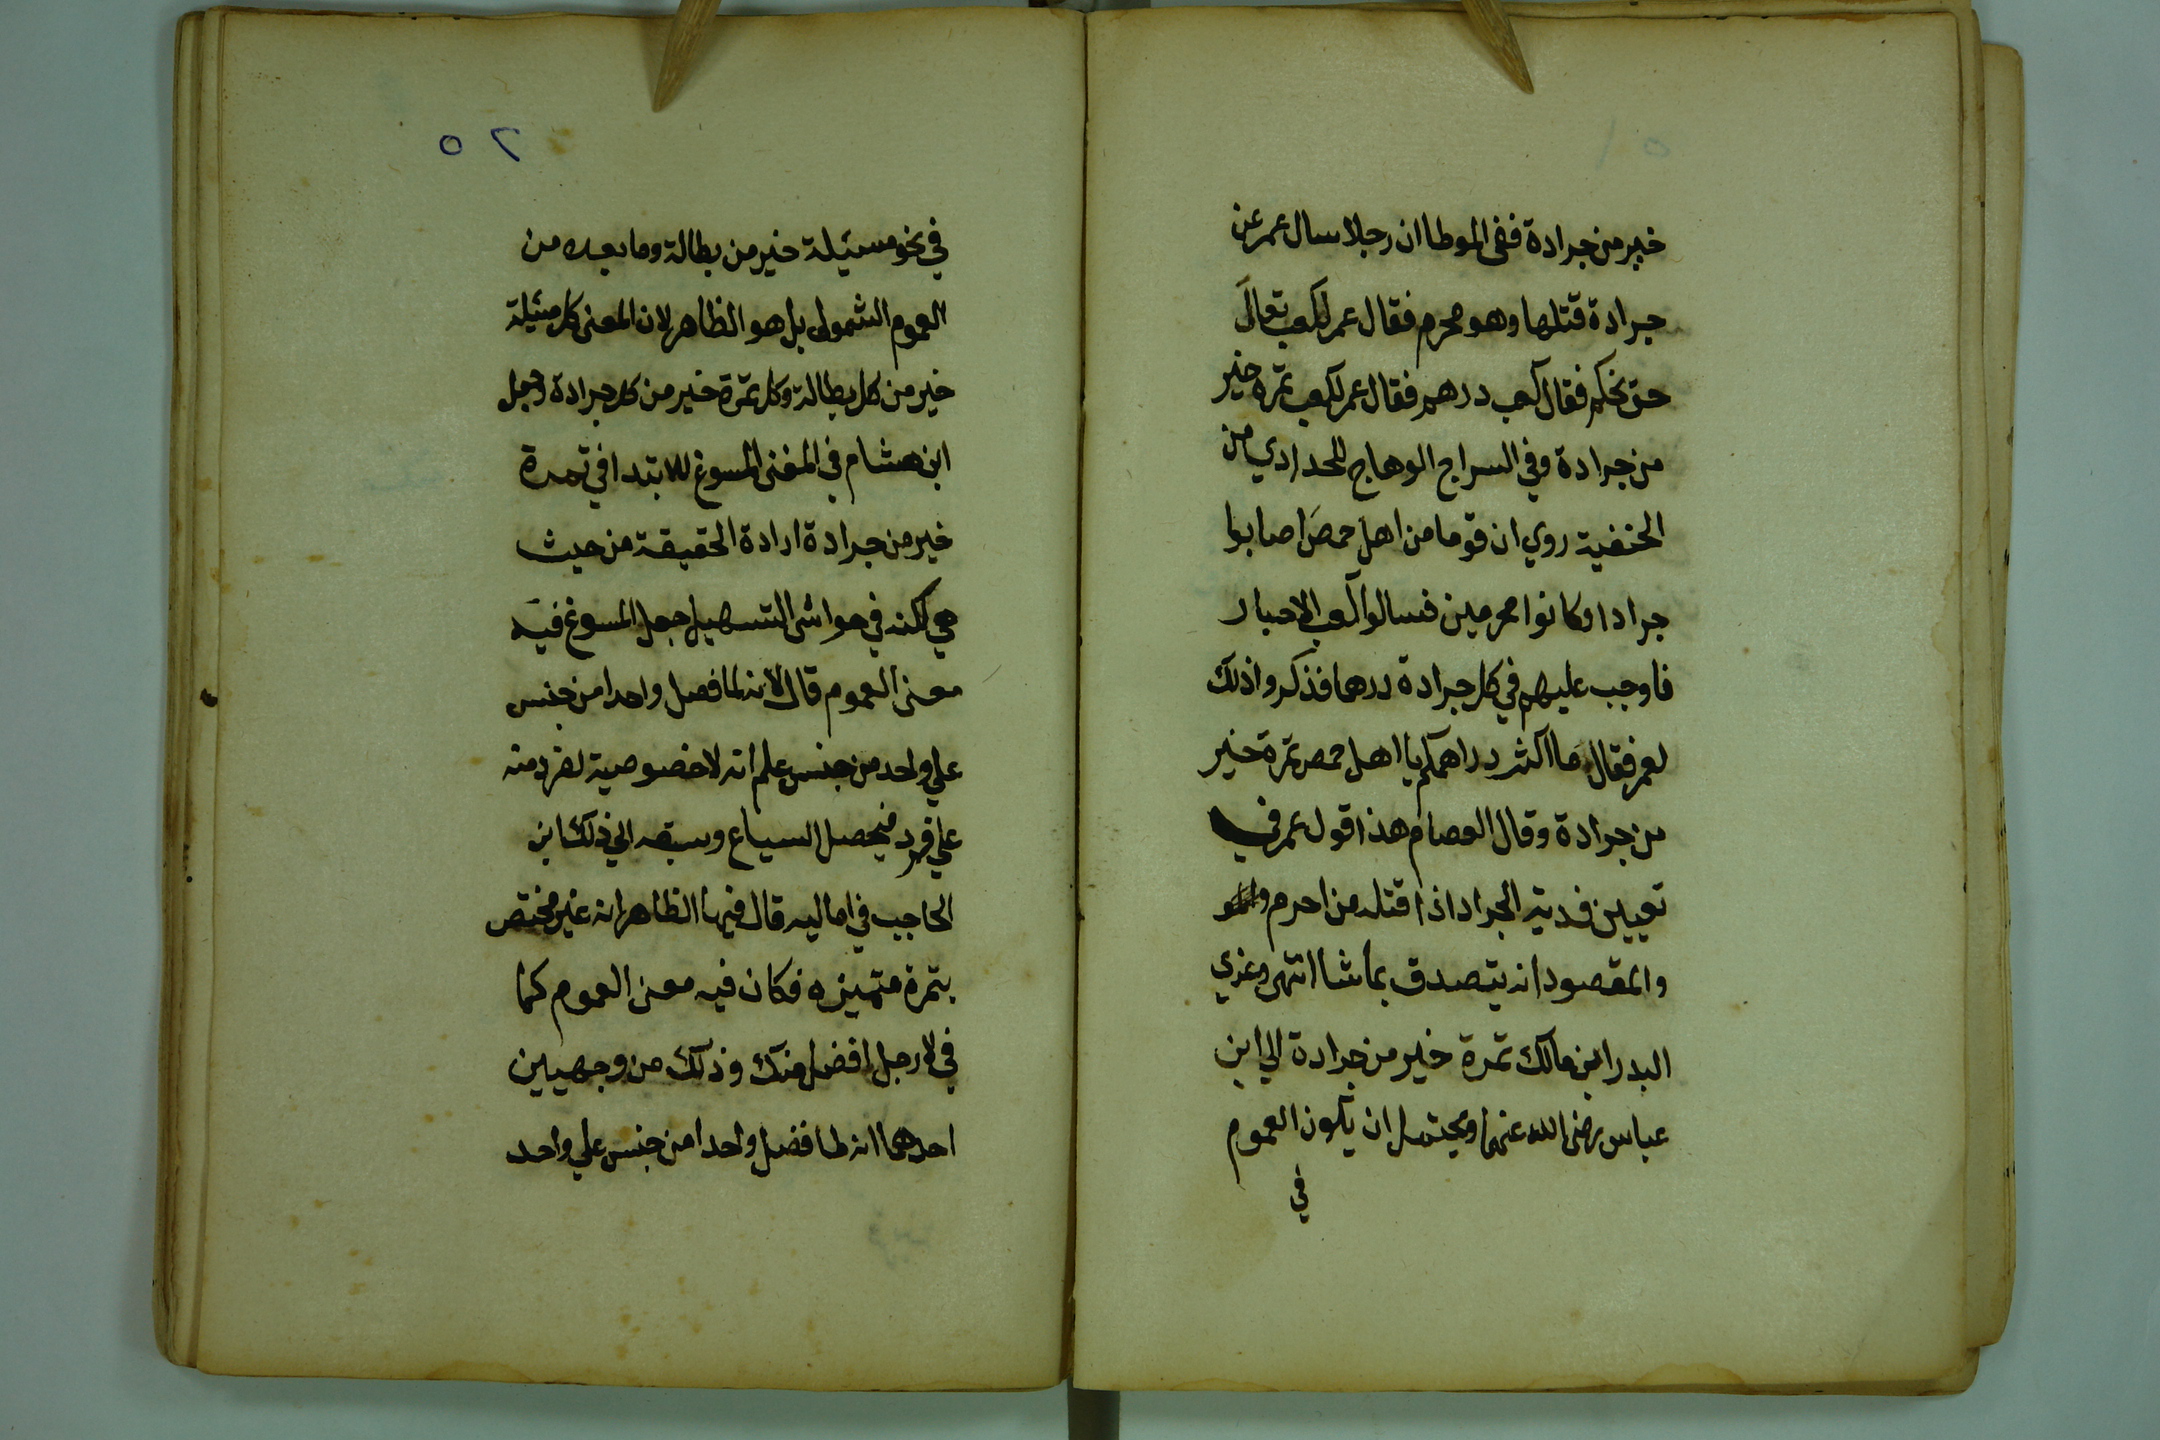 خير من جرادة ففى الموطا ان رجلا سال عمر عن
جرادة قتلها وهو محرم فقال عمر لكعب تعالَ
حتى نحكم فقال كعب درهم فقال عمر لكعب تمرة خير
من جرادة وفي السراج الوهاج للحدادي من
الحنفية روي ان قوما من اهل حمصَ اصابوا
جرادا وكانوا محرمين فسالوا كعب الاحبار
فاوجب عليهم في كل جرادة درهما فذكروا ذلك
لعمر فقال ما اكثر دراهمكم يا اهل حمص تمرة خير
من جرادة وقال العصام هذا قول عمر في
تعيين فدية الجراد اذا قتله من احرم
والمقصود انه يتصدق بما شا انتهى وعزي
البدر ابن مالك تمرة خير من جرادة الي ابن
عباس رضى الله عنهما ويحتمل ان يكون العموم
في
٥٢
في نحو مسئيلة خير من بطالة وما بعده من
العموم الشمولى بل هو الظاهر لان المعنى كل مسئيلة
خير من كل بطالة وكل تمرة خير من كل جرادة وجعل
ابن هشام في المغنى المسوغ للابتدا في تمرة
خير من جرادة ارادة الحقيقة من حيث
هي لكنه في حواشى التسهيل جعل المسوغ فيه
معنى العموم قال لانه لما فصل واحدا من جنس
علي واحد من جنس علم انه لا خصوصية لفرد منه
علي فرد فيحصل السياع وسبقه الي ذلك ابن
الحاجب في اماليه قال فيها الظاهر انه غير مختص
بتمرة متميزه فكان فيه معنى العموم كما
في لا رجل افضل منك وذلك من وجهين
احدهما انه لما فضل واحدا من جنس علي واحد